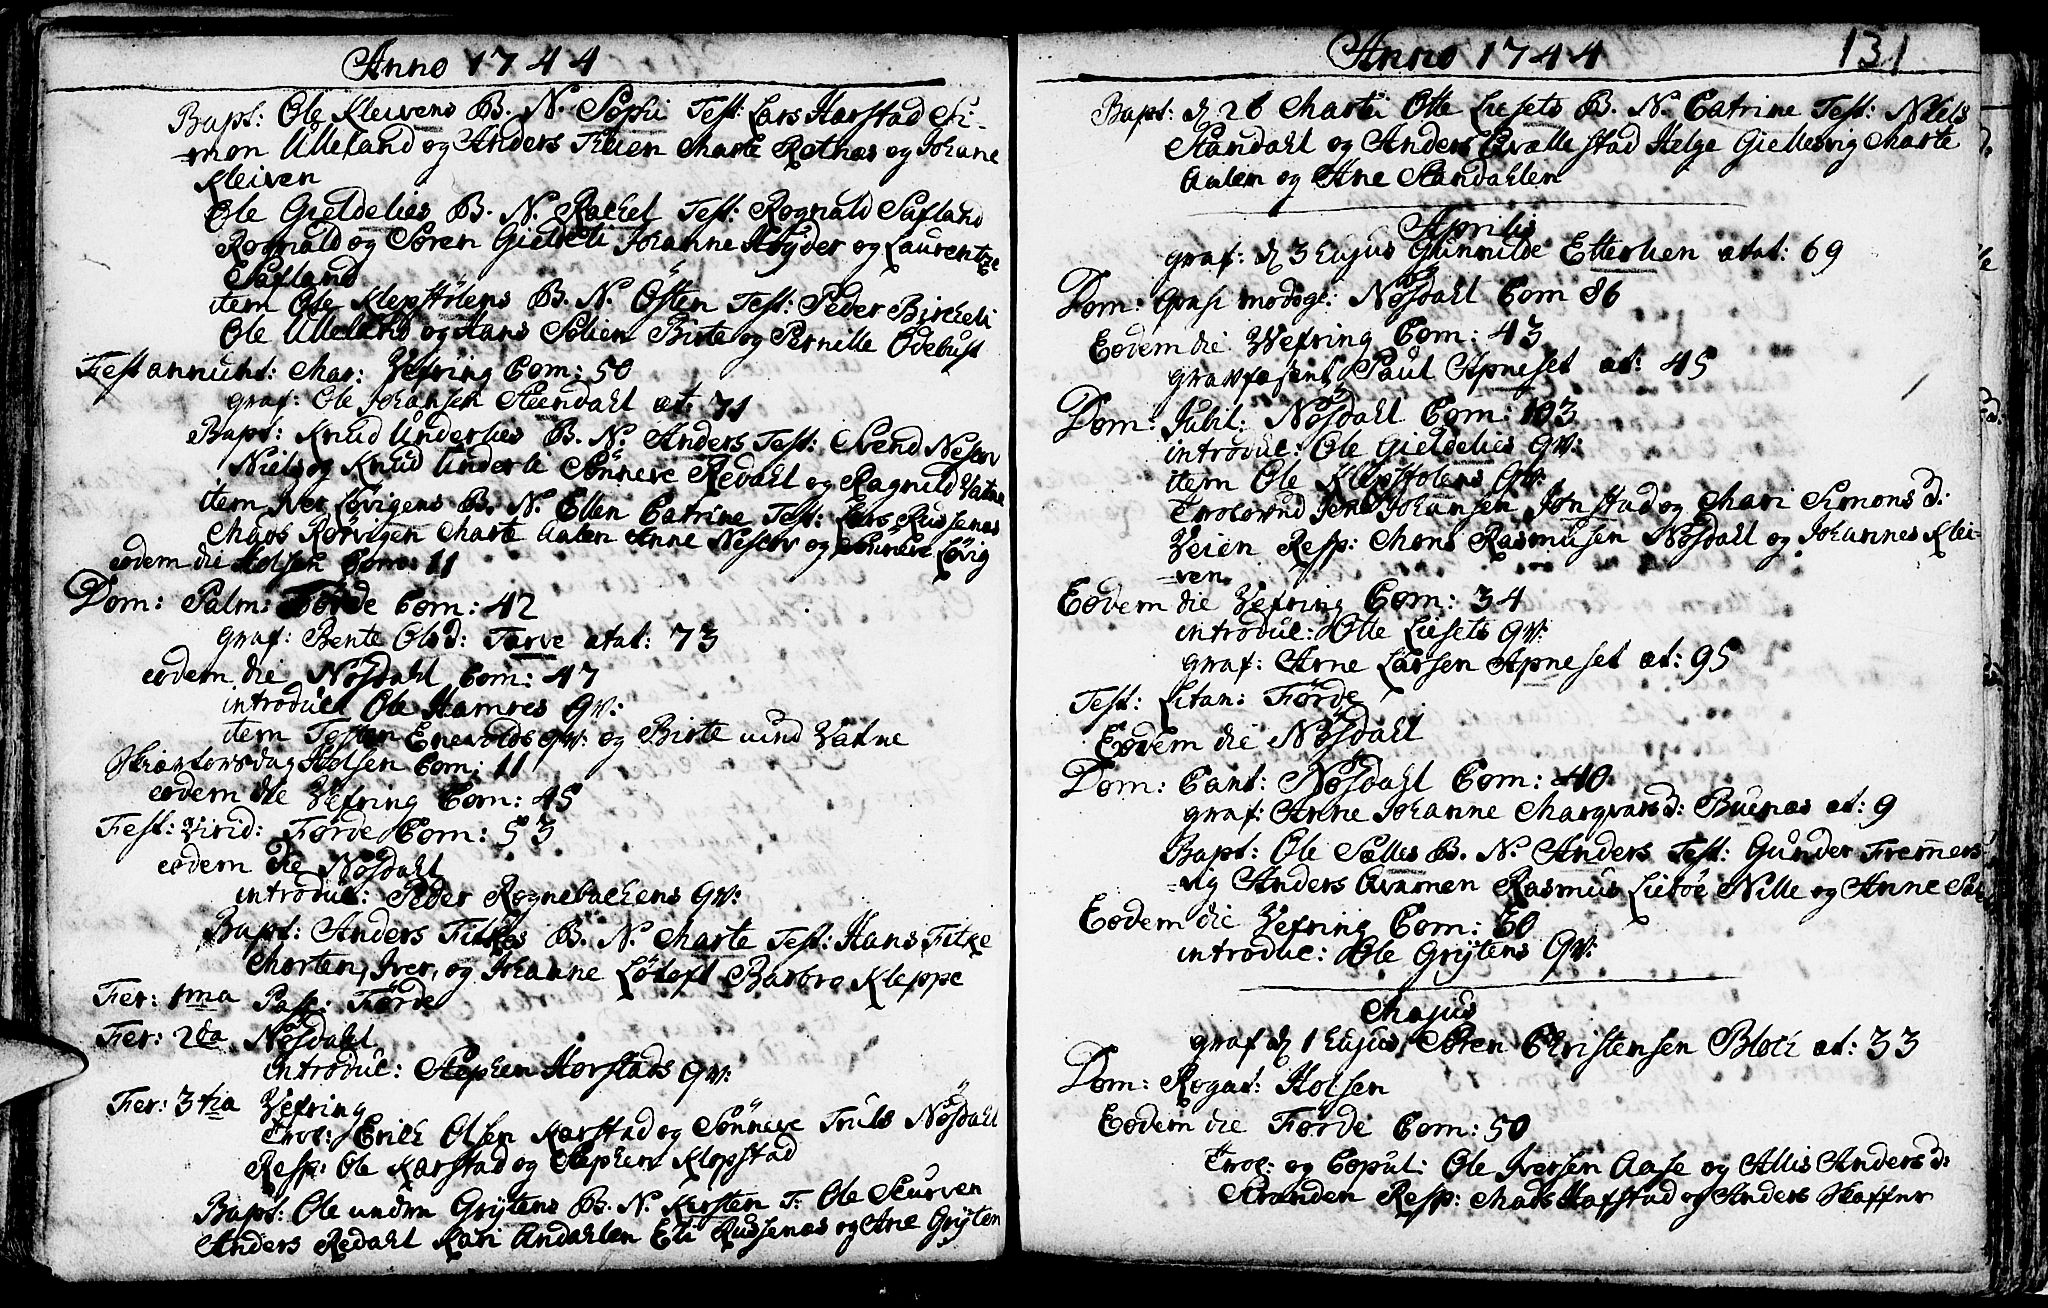 Anno 1744
Bapt: Ole Kleivens B. N. Sophi Test: Lars Harstad Si-
=mon Ulleland og Anders Marte Rotnes og Johane
Kleiven
Ole Gieldelies B. N. Rachel Test: Rognald Safland
Rognald og Søren Gieldeli Johanne Høyder og Laurentze
Safland
item Ole Klepstølens B. N. Østen Test: Peder Birkeli
Ole Ulleland og Hans Solien Birte og Pernille Ødebust
Fest annunt: Mar: Vefring Com: 50
graf: Ole Johansen Steendahl æt: 71
Bapt: Knud Underlies B. N. Anders Test: Svend
Niels og Knud Underli Sønneve Redahl og Ragnild Vatne
item Iver Løvigens B. N. Ellen Catrine Test: Lars Russenæs
Mads Rørvigen Marte Aalen Anne og Sønneve Løvig
eodem die Holsen Com: 11
Dom: Palm: Førde Com: 42
graf: Bente Olsd: Tarve ætat: 73
eodem die Nøsdahl Com: 47
introduc Ole Hamres qv:
item Tosten Enevolds qv: og Birte Vatne
Skiærtorsdag Holsen Com: 11
eodem die Vefring Com: 45
Fest: Virid: Førde Com: 53
eodem die Nøsdahl
introduc: Peder Rognebachens qv:
Bapt: Anders Fitkes B. N. Marte Test: Hans Fitke
Morten, Iver, og Johanne Løtoft Barbro Kleppe
Fer: 1ma Pasc: Førde
Fer: 2da Nøsdahl
introduc: Stephen Horstads qv:
Fer: 3tia Vefring
Trol: Erich Olsen Karstad og Sønneve Truls Nøsdahl
Resp: Ole Karstad og Stephen Klopstad
Bapt: Ole undrn Grytens B. N. Kirsten T: Ole Scurven
Anders Redahl Kari Andahlen Eli Russenæs og Ane Gryten
Anno 1744 131
Bapt: d 26 Marti Otte Liesets B. N. Catrine Test: Niels
Standahl og Anders Qvallestad Helge Giellesvig Marte
Aalen og Ane Standahlen
Aprilis
graf: d 3 Hujus Gunnilde Etterlien ætat: 69
Dom: Qvasi modog: Nøsdahl Com 86
Eodem die Vefring Com: 43
gravfæsent Paul Apneset æt: 45
Dom: Jubil: Nøsdahl Com: 103
introduc: Ole Gieldelies qv:
item Ole Klepstolens qv:
Trolovnd Jens Johansen Jonstad og Mari Simonsd:
Veien Resp: Mons Rasmusen Nøsdahl og Johannes Klei-
=ven
Eodem die Vefring Com: 34
introduc: Otte Liesets qv:
graf: Arne Larsen Apneset æt: 95
Test: Litan: Førde
Eodem die Nøsdahl
Dom: Cant: Nøsdahl Com: 40
graf: Anne Johanne Margvardd: Buenæs æt: 9
Bapt: Ole Sælles B. N. Anders Test: Gunder Fremers
=vig Anders Rasmus Lietøe Nille og Anne
Eodem die Vefring Com: 30
introduc: Ole Grytens qv:
Majus
graf d 1 Hujus Søren Christensen Bloch æt: 33
Dom: Rogat: Holsen
Eodem die Førde Com: 50
Trol: og Copul: Ole Iversen Aase og Allis Andersd:
Stranden Resp: Mads Hafstad og Anders Skaffner